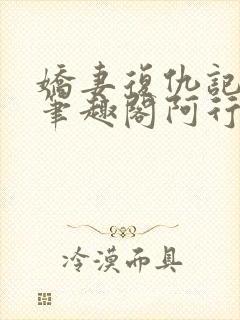 嬌妻復仇記
筆趣閣阿行
冷漠面具